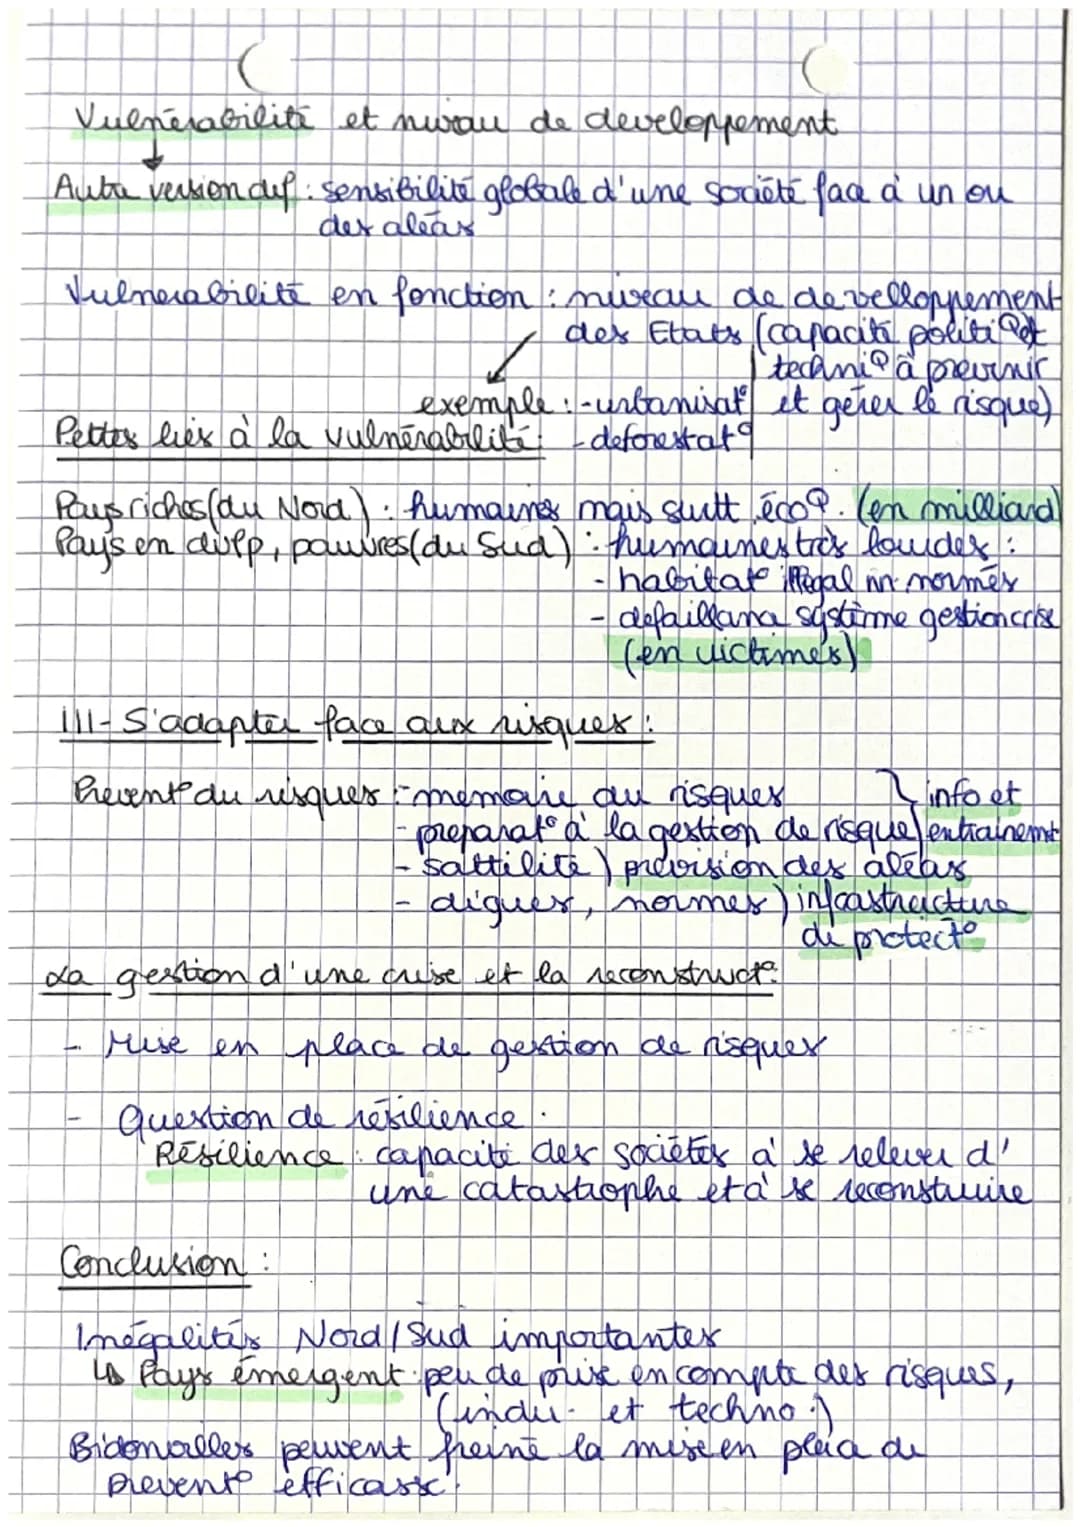 Vulnérabilité et niveau de developpement
Autre version def : sensibilité globale d'une société face à un ou
des aléas
Vulnerabilité en fonction : niveau de develloppement
des Etats (capacité politiQ et
techniQ à prevenir
exemple : - urbanisat° et gérer le risque)
Pertes liés à la vulnérabilité : - deforestat°
Pays riches (du Nord) : humaines mais surtt écoQ. (en milliard)
Pays en dvlp, pauvres (du Sud) : humaines très lourdes :
- habitat illégal nn normés
- defaillance système gestion crise
(en victimes)
III - S'adapter face aux risques :
Prevent° du risques : - memoire du risques } info et
- preparat° à la gestion de risque entrainemt
- sattilité ) prévision des aléas
- digues, normes ) infrastructure
de protect°
La gestion d'une crise et la reconstruct° :
- Mise en place de gestion de risques
- Question de résilience .
Résilience : capacité des sociétés à se relever d'
une catastrophe et à se reconstruire
Conclusion :
Inégalités Nord/Sud importantes
↳ Pays émergent : peu de prise en compte des risques,
(indu. et techno.)
Bidonvilles peuvent freiné la mise en place de
prevent° efficasse.